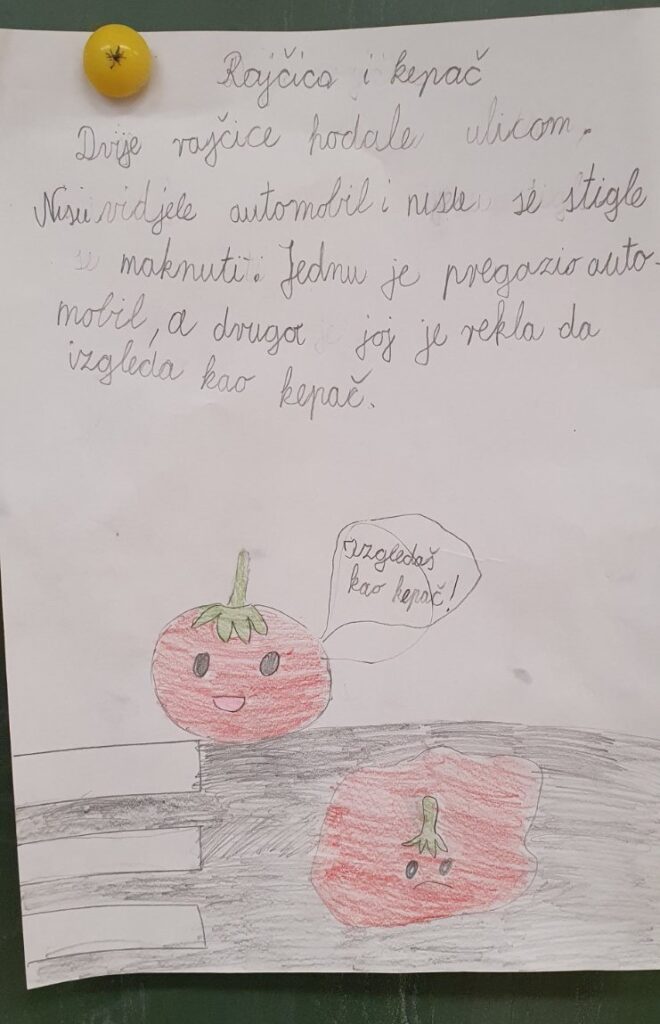 Rajčica i kepač
Dvije rajčice hodale ulicom.
Nisu vidjele automobil i nisu se stigle
maknuti. Jednu je pregazio auto-
mobil, a druga joj je rekla da
izgleda kao kepač.
Izgledaš
kao kepač!